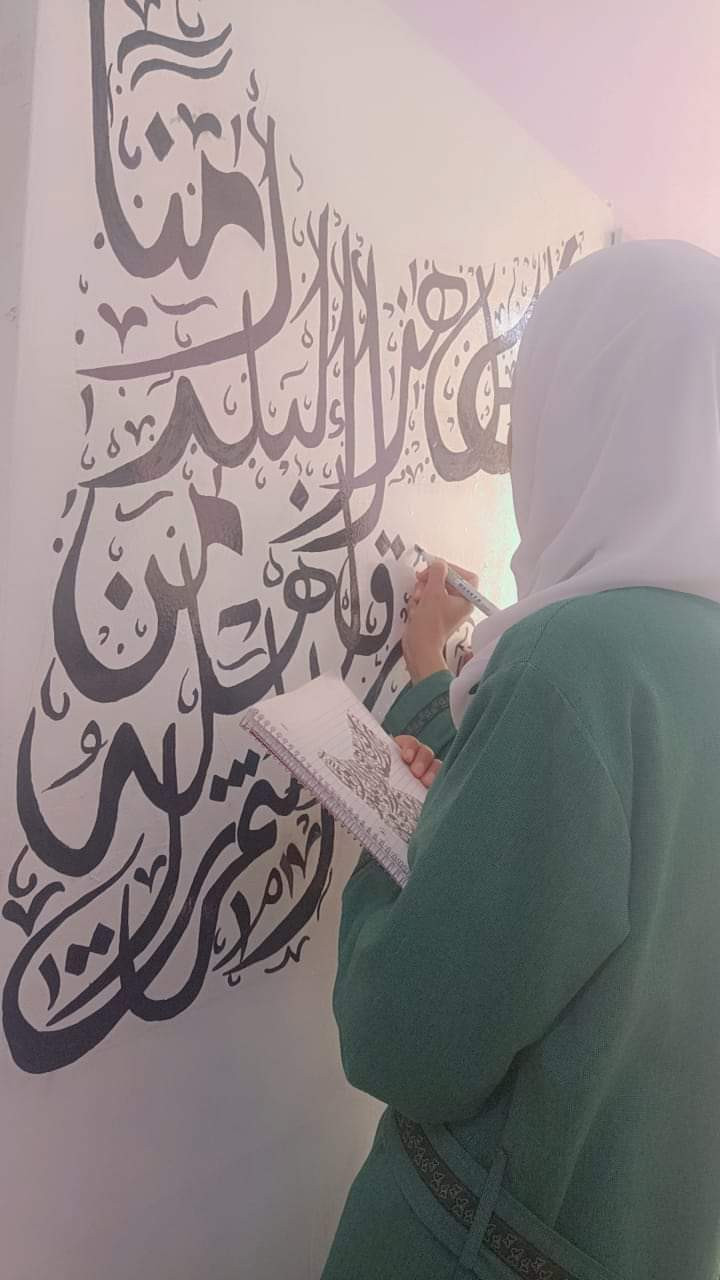 هذا البلد آمنا
وارزق أهله من
الثمرات